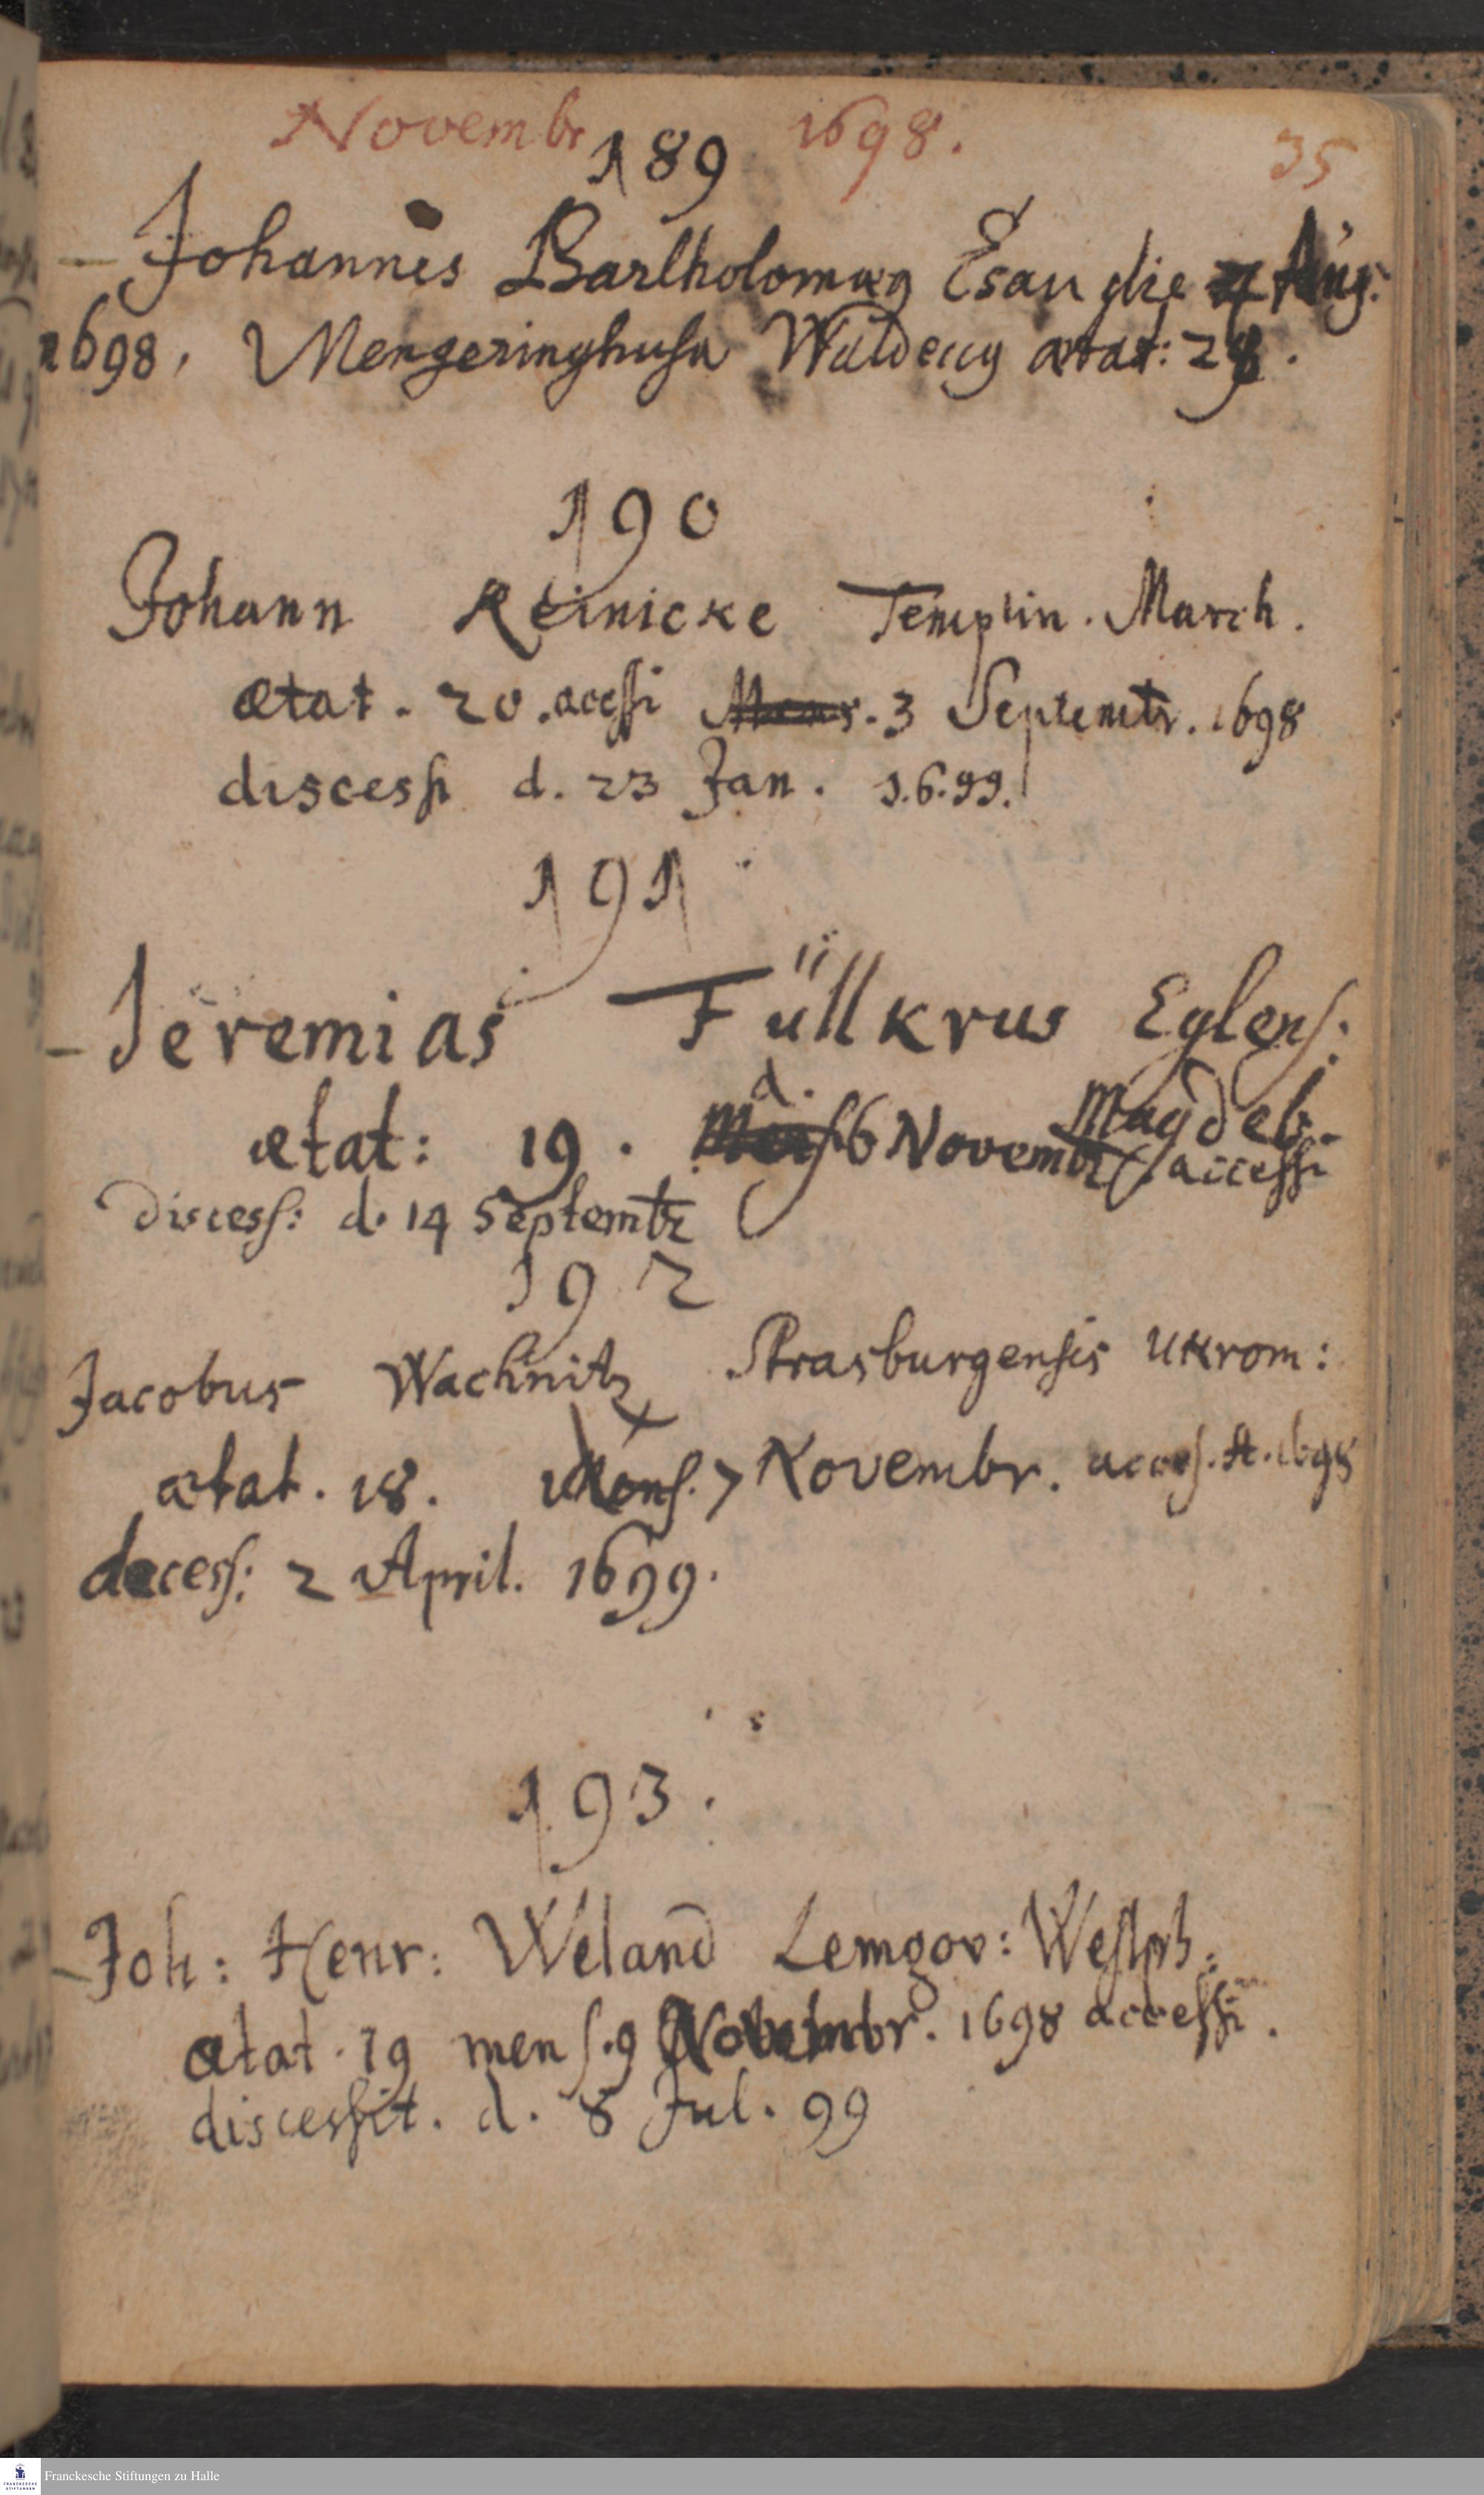 Novembr 1698.
35
189
Johannes Bartholomæus Esau die Aug.
1698, Mengeringhusa Waldeccg ætat: 28.
190
Johann Reinicke Templin. March.
ætat. 20. acessi 3 Septembr. 1698
discessi d. 23 Jan. 1.6.99.
191
Jeremias Füllkrus Eglens:
Magdeb.
ætat: 19. d. 6 Novembr accessi
discess: d. 14 Septembr
192
Jacobus Wachnitz Strasburgensis Ukrom:
ætat. 18. Mens. 7 Novembr. acces. A. 1698
decess: 2 April. 1699.
193.
Joh: Henr: Weland Lemgov: Westph:
ætat. 19 mens. 9 Novembr. 1698 accessi.
discessit. d. 8 Jul. 99
Franckesche Stiftungen zu Halle